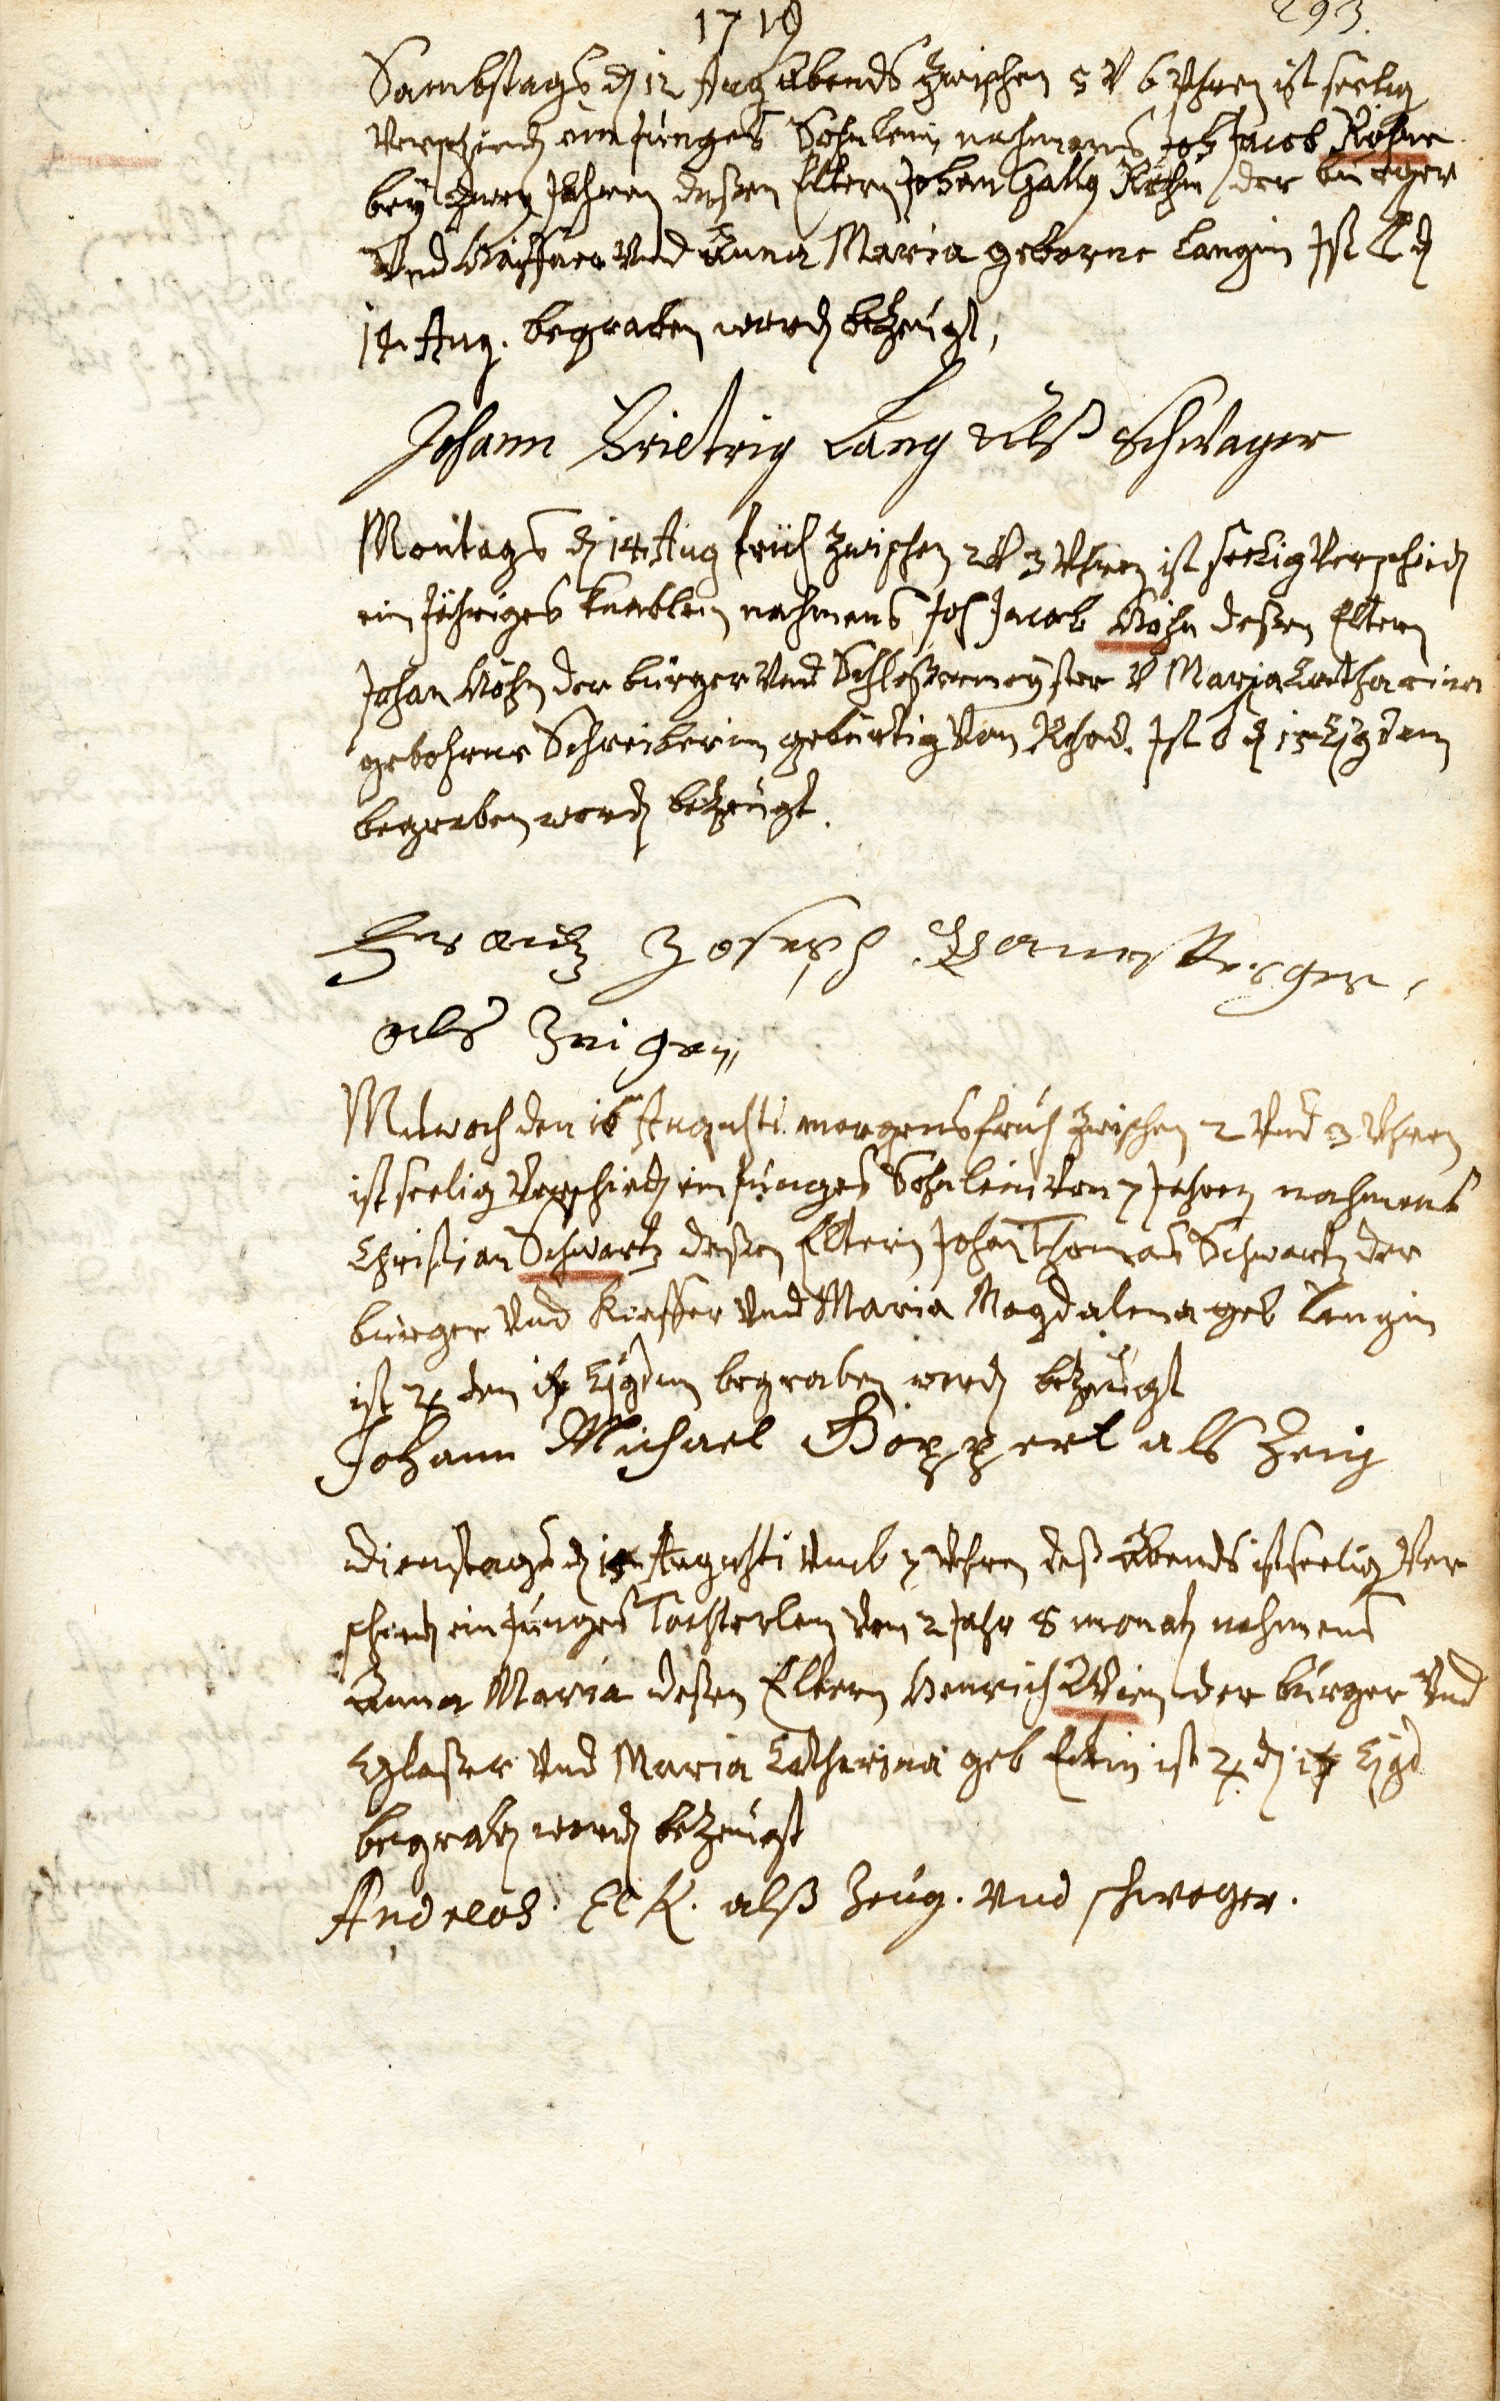 1719
293.
Sambstags dẽ 12 Aug Abends Zwischen 5 V 6 Uhren ist seelig
Verschied ein junges Söhnlein nahmens Joh Jacob Röhne
bey zwey Jahren deßen Eltern Johan Röhn der burger
Und Und Anna Maria geborne Langin Ist d
14. Aug. begraben word bezeugt,
Johann Lang Alß Schwager
Montags d 14 Aug früh Zwischen 2 V 3 Uhren ist seelig Verschied
ein Jähriges Knäblein nahmens Joh Jacob Böhn deßen Eltern
Johan Böhn der bürger Und Schloßermeyster V Maria Catharina
gebohrne Schreiberin gebürtig Von Rhod. Ist d 15 Ejusdem
begraben word bezeugt.
Frantz Joseph
als Zeigen
Mitwoch den 16 Augusti morgens früh Zwischen 2 Und 3 Uhren
ist seelig Verschied ein junges Söhnlein Von 7 Jahren nahmens
Christian Schwartz deßen Eltern Johan Thomas Schwartz der
burger Und Kieffer Und Maria Magdalena geb Langin
ist ♃ den 17 Ejusdem begraben word bezeugt
Johann Michael Göppert als Zeig
Dienstags d 15 Augusti Umb 7 Uhren deß Abends ist seelig Ver
schied ein junges Töchterlein Von 2 Jahr 8 monath nahmens
Anna Maria deßen Eltern Henrich Wien der bürger Und
Glaßer Und Maria Catharina geb Eckin ist ♃ d 17 Ejusd
begrab word bezeugt
Andreas Eck. alß Zeug. Und schwager.